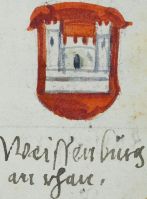 Weissenburg
am rhan.